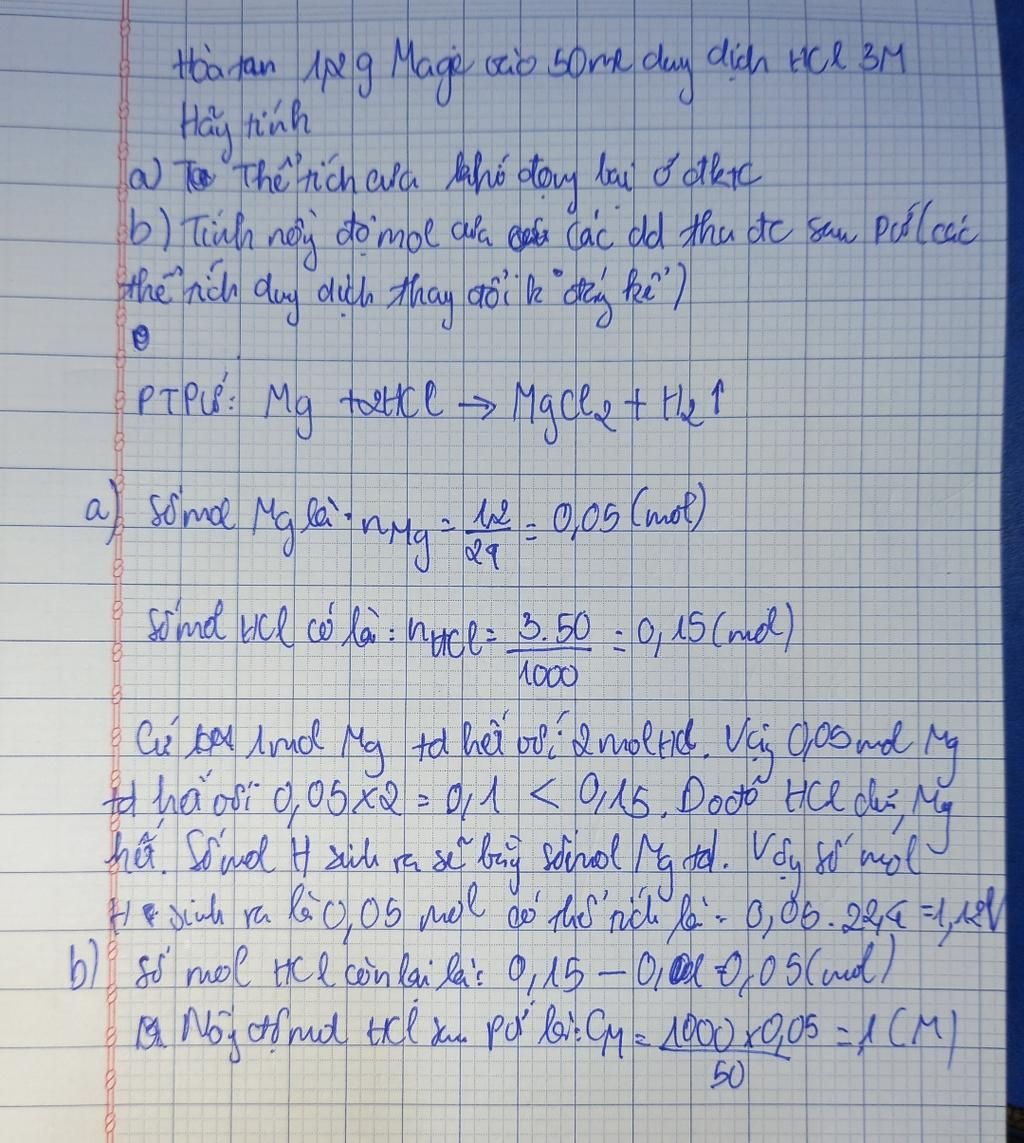 Hòa tan 1,2g Magê vào 50ml dung dịch HCl 3M
Hãy tính
a) Thể tích của khí đọng lại ở đktc
b) Tính nồng độ mol của các dd thu đc sau pứ (các
thể tích dung dịch thay đổi k đáng kể)
PTPƯ: Mg + 2HCl → MgCl2 + H2↑
a) Số mol Mg là: nMg = 1,2/24 = 0,05 (mol)
Số mol HCl có là: nHCl = 3.50/1000 = 0,15 (mol)
Cứ 1 mol Mg td hết với 2 mol HCl. Vậy 0,05 mol Mg
td hết với 0,05 x 2 = 0,1 < 0,15. Do đó HCl dư, Mg
hết. Số mol H sinh ra sẽ bằng số mol Mg td. Vậy số mol
H sinh ra là 0,05 mol có thể tích là: 0,05.22,4 = 1,12
b) Số mol HCl còn lại là: 0,15 – 0,1 = 0,05 (mol)
Nồng độ mol HCl sau pứ là: CM = 1000 x 0,05/50 = 1 (M)